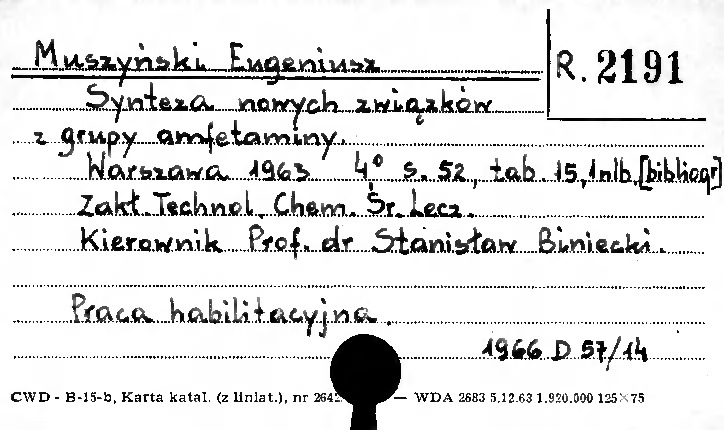 Muszyński Eugeniusz
R. 2191
Synteza nowych związków
z grupy amfetaminy.
Warszawa 1963 4° s. 52, tab. 15, 1 nlb. [bibliogr]
Zakł. Technol. Chem. Śr. Lecz.
Kierownik Prof. dr Stanisław Biniecki.
Praca habilitacyjna.
1966 D 57/14
CWD - B-15-b, Karta katal. (z liniat.), nr 264 — WDA 2683 5.12.63 1.920.000 125×75